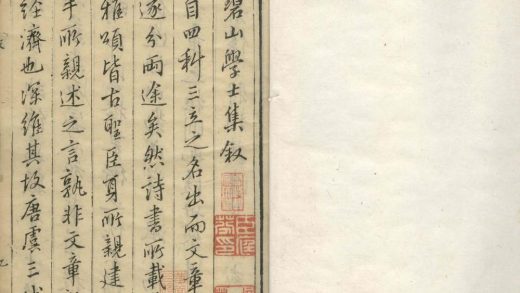 碧山學士集叙
自四科三立之名出而文章
遂分兩途矣然詩書所載
雅頌皆古聖臣身所親建
手所親述之言孰非文章
經濟也深維其故唐虞三